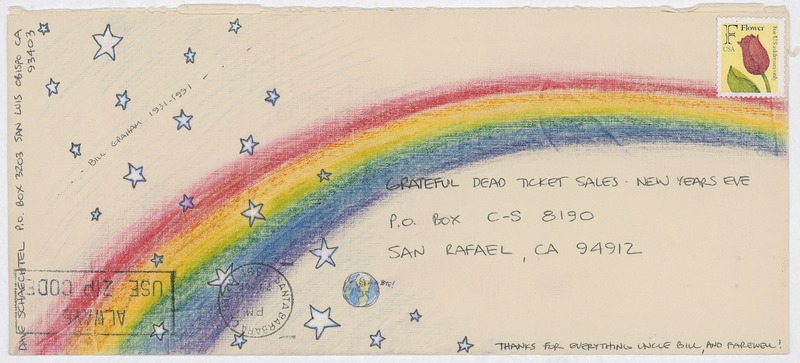 DAVE SCHAECHTEL P.O. BOX 3203 SAN LUIS OBISPO CA
93403
BILL GRAHAM 1931-1991
F Flower
USA
For U.S. addresses only
GRATEFUL DEAD TICKET SALES · NEW YEARS EVE
P.O. BOX C-S 8190
SAN RAFAEL, CA 94912
ALWAYS
USE ZIP CODE
SANTA BARBARA
PM
THANKS FOR EVERYTHING UNCLE BILL, AND FAREWELL!